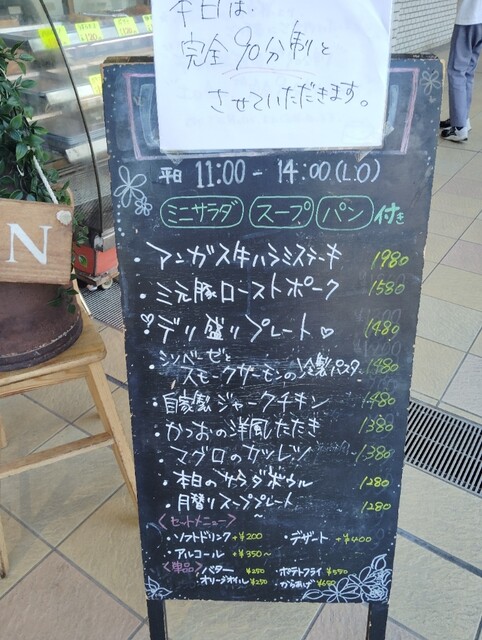 本日は、
完全90分制と
させていただきます。
平日 11:00 - 14:00 (L.O)
ミニサラダ スープ パン 付き
・アンガス牛ハラミステーキ 1980
・三元豚ローストポーク 1580
♡デリ盛りプレート♡ 1480
スモークサーモンの冷製パスタ 1480
・自家製ジャークチキン 1480
・かつおの洋風たたき 1380
・マグロのカツレツ 1380
・本日のサラダボウル 1280
・月替りスーププレート 1280
〈セットメニュー〉
・ソフトドリンク +¥200 ・デザート +¥400
・アルコール +¥350~
〈単品〉 バター ¥250 ポテトフライ ¥550
オリーブオイル ¥250 からあげ ¥650
N